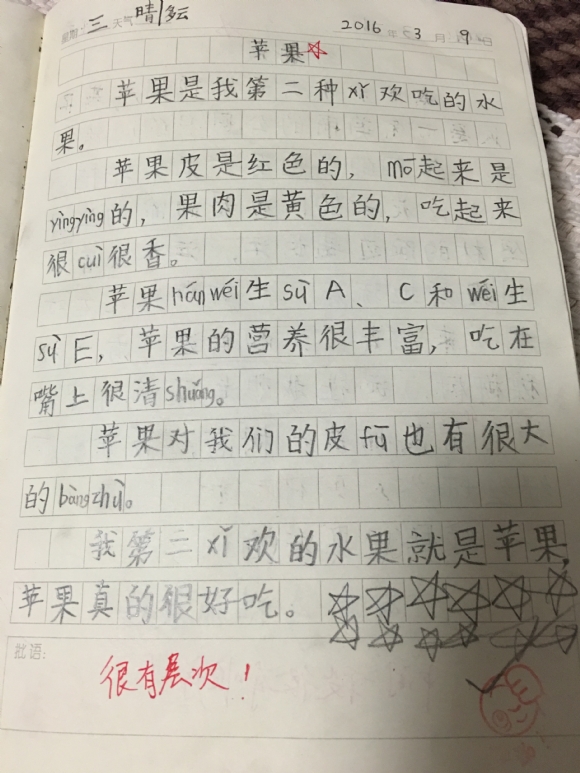 星期：三 天气 晴/多云 2016年3月9日
苹果☆
苹果是我第二种xǐ欢吃的水
果。
苹果皮是红色的，mō起来是
yìngyìng的，果肉是黄色的，吃起来
很cuì很香。
苹果hánwéi生sùA、C和wéi生
sùE，苹果的营养很丰富，吃在
嘴上很清shuǎng。
苹果对我们的皮fū也有很大
的bāngzhù。
我第二xǐ欢的水果就是苹果，
苹果真的很好吃。
批语：
很有层次！